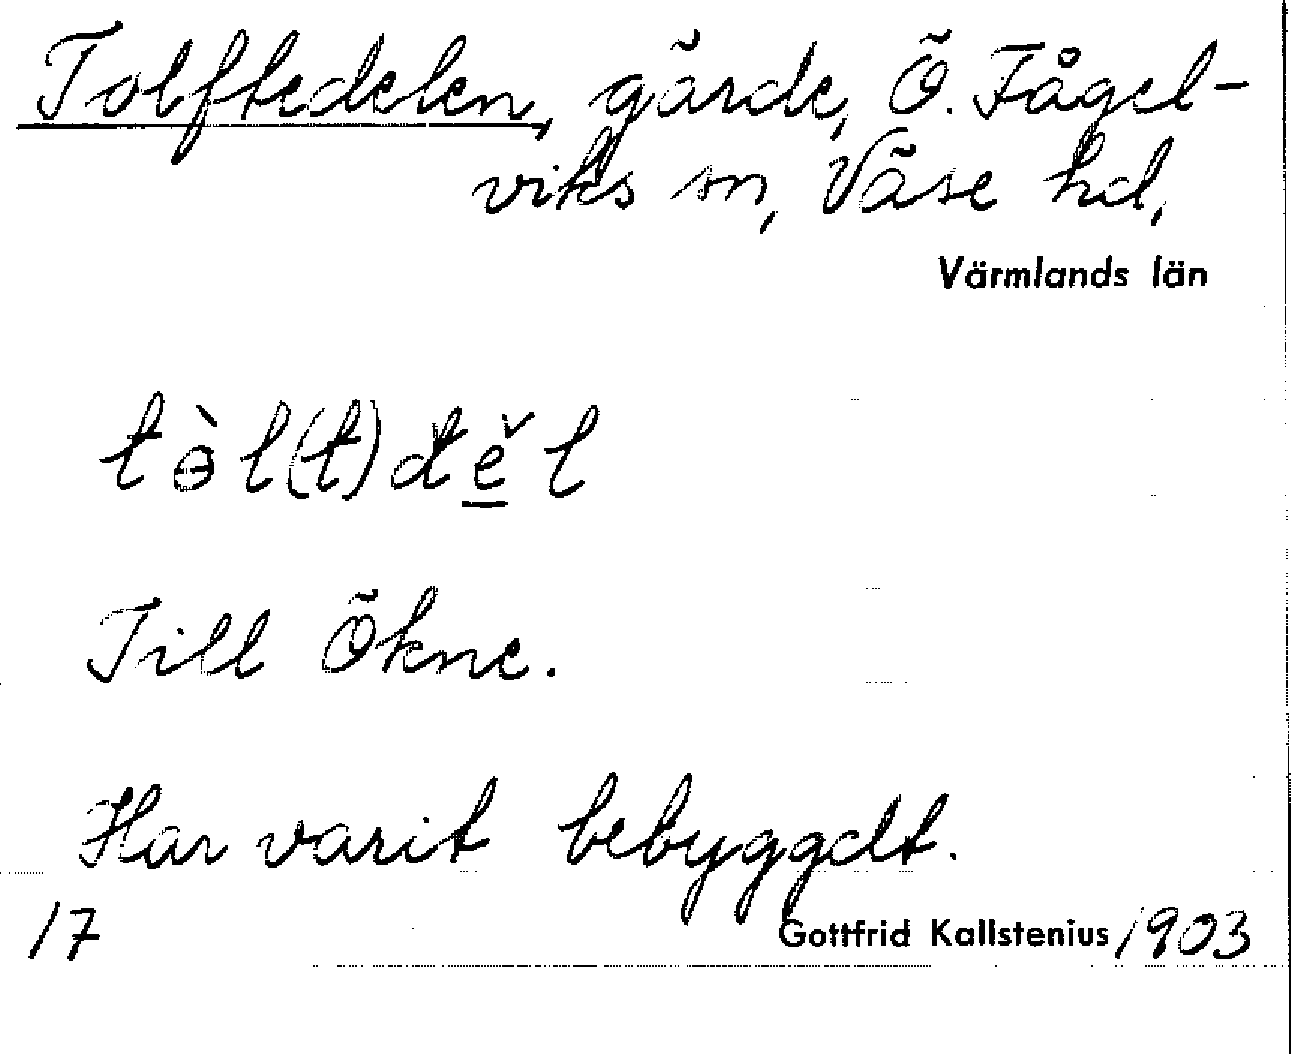 Tolftedelen, gärde, Ö. Fågel-
viks sn, Väse hd,
Värmlands län
tɵ̀l(t)dě̲l
Till Ökne.
Har varit bebyggdt.
17 Gottfrid Kallstenius 1903